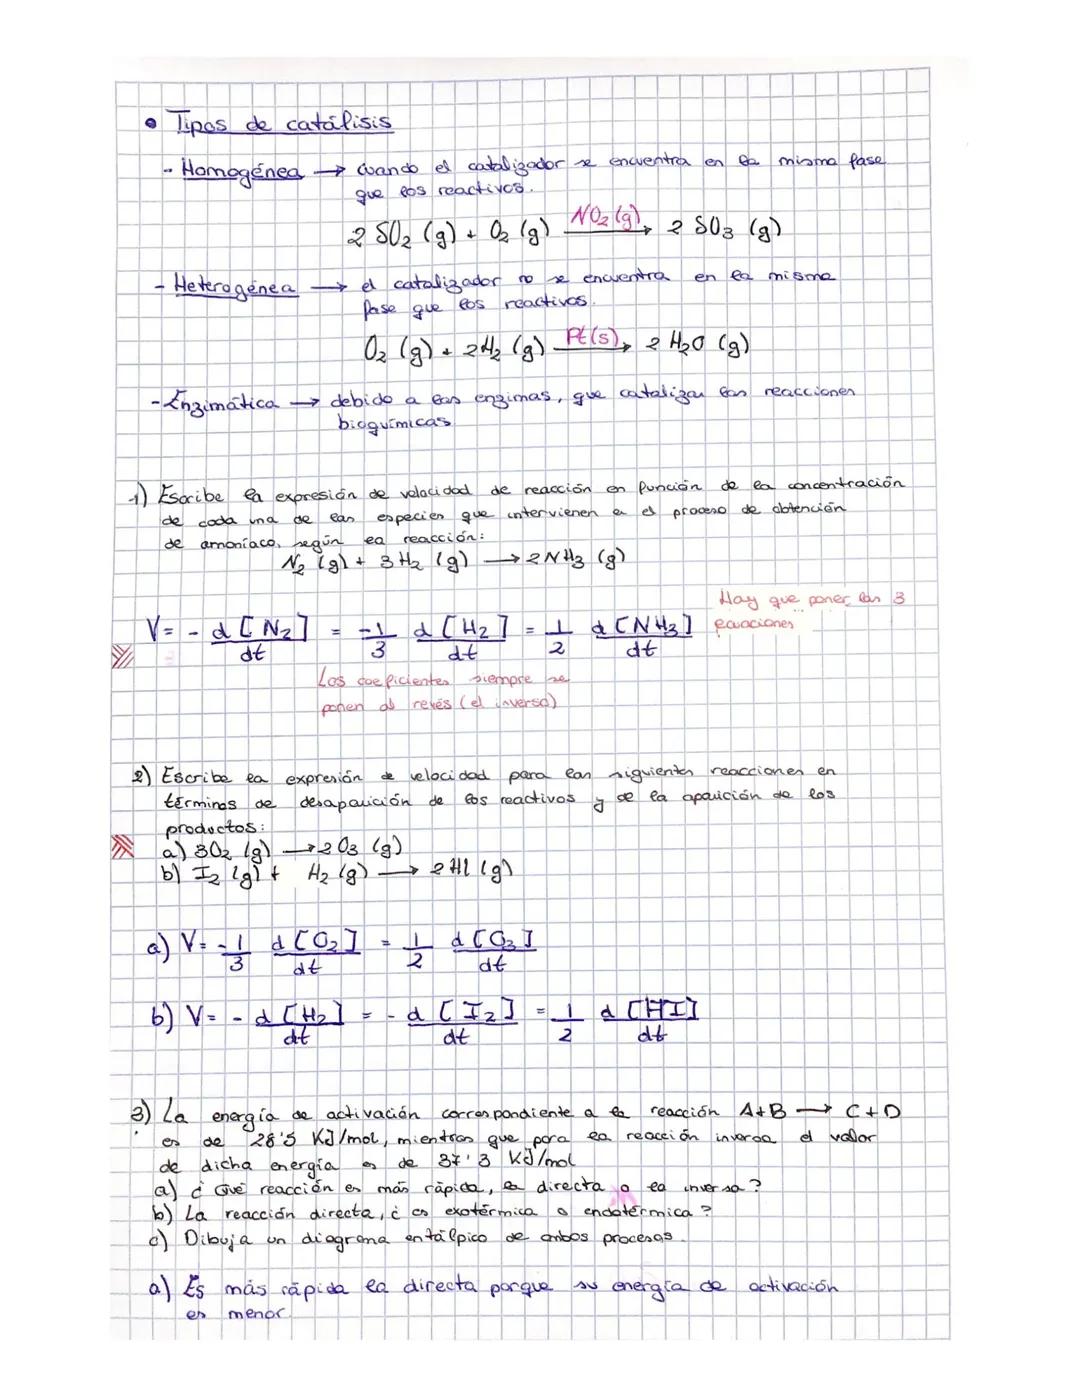 • Tipos de catálisis
- Homogénea → cuando el catalizador se encuentra en la misma fase
que los reactivos.
2 SO₂ (g) + O₂ (g) NO₂(g)→ 2 SO₃ (g)
- Heterogénea → el catalizador no se encuentra en la misma
fase que los reactivos.
O₂ (g) + 2H₂ (g) Pt(s)→ 2 H₂O (g)
- Enzimática → debido a las enzimas, que catalizan las reacciones
bioquímicas
1) Escribe la expresión de velocidad de reacción en función de la concentración
de cada una de las especies que intervienen en el proceso de obtención
de amoníaco, según la reacción:
N₂ (g) + 3 H₂ (g) → 2 NH₃ (g)
Hay que poner las 3
ecuaciones
V = - d [N₂]/dt = -1/3 d [H₂]/dt = 1/2 d [NH₃]/dt
Los coeficientes siempre se
ponen al revés (el inverso)
2) Escribe la expresión de velocidad para las siguientes reacciones en
términos de desaparición de los reactivos y de la aparición de los
productos:
a) 3O₂ (g) → 2 O₃ (g)
b) I₂ (g) + H₂ (g) → 2 HI (g)
a) V = -1/3 d [O₂]/dt = 1/2 d [O₃]/dt
b) V = - d [H₂]/dt = - d [I₂]/dt = 1/2 d [HI]/dt
3) La energía de activación correspondiente a la reacción A+B → C+D
es de 28'5 KJ/mol, mientras que para la reacción inversa el valor
de dicha energía es de 37'3 KJ/mol
a) ¿Qué reacción es más rápida, la directa o la inversa?
b) La reacción directa, ¿es exotérmica o endotérmica?
c) Dibuja un diagrama entálpico de ambos procesos.
a) Es más rápida la directa porque su energía de activación
es menor.